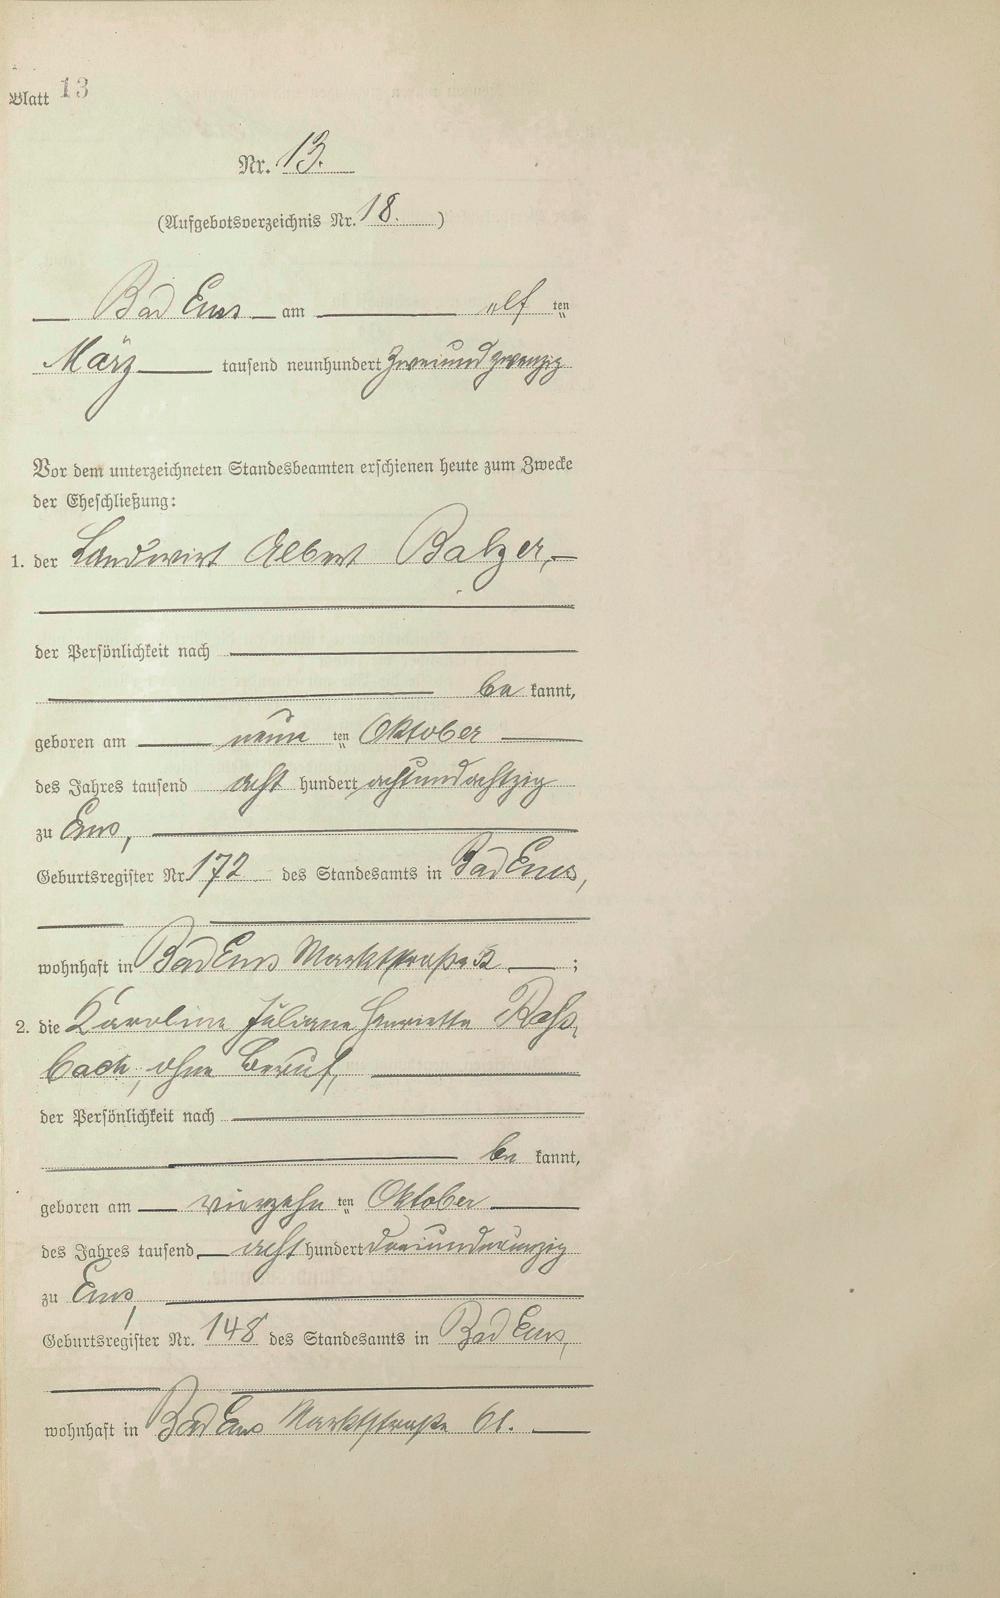 Blatt 13
Nr. 13.
(Aufgebotsverzeichnis Nr. 18. )
Bad Ems am elf ten
März tausend neunhundert zweiundzwanzig
Vor dem unterzeichneten Standesbeamten erschienen heute zum Zwecke
der Eheschließung:
1. der Landwirt Albert Balzer,
der Persönlichkeit nach
be kannt,
geboren am neun ten Oktober
des Jahres tausend acht hundert achtundachtzig
zu Ems,
Geburtsregister Nr. 172 des Standesamts in Bad Ems,
wohnhaft in Bad Ems Marktstraße ;
2. die Karoline Juliane Henriette
bach, ohne Beruf,
der Persönlichkeit nach
be kannt,
geboren am vierzehn ten Oktober
des Jahres tausend acht hundert dreiundneunzig
zu Ems,
Geburtsregister Nr. 148 des Standesamts in Bad Ems,
wohnhaft in Bad Ems Marktstraße 61.